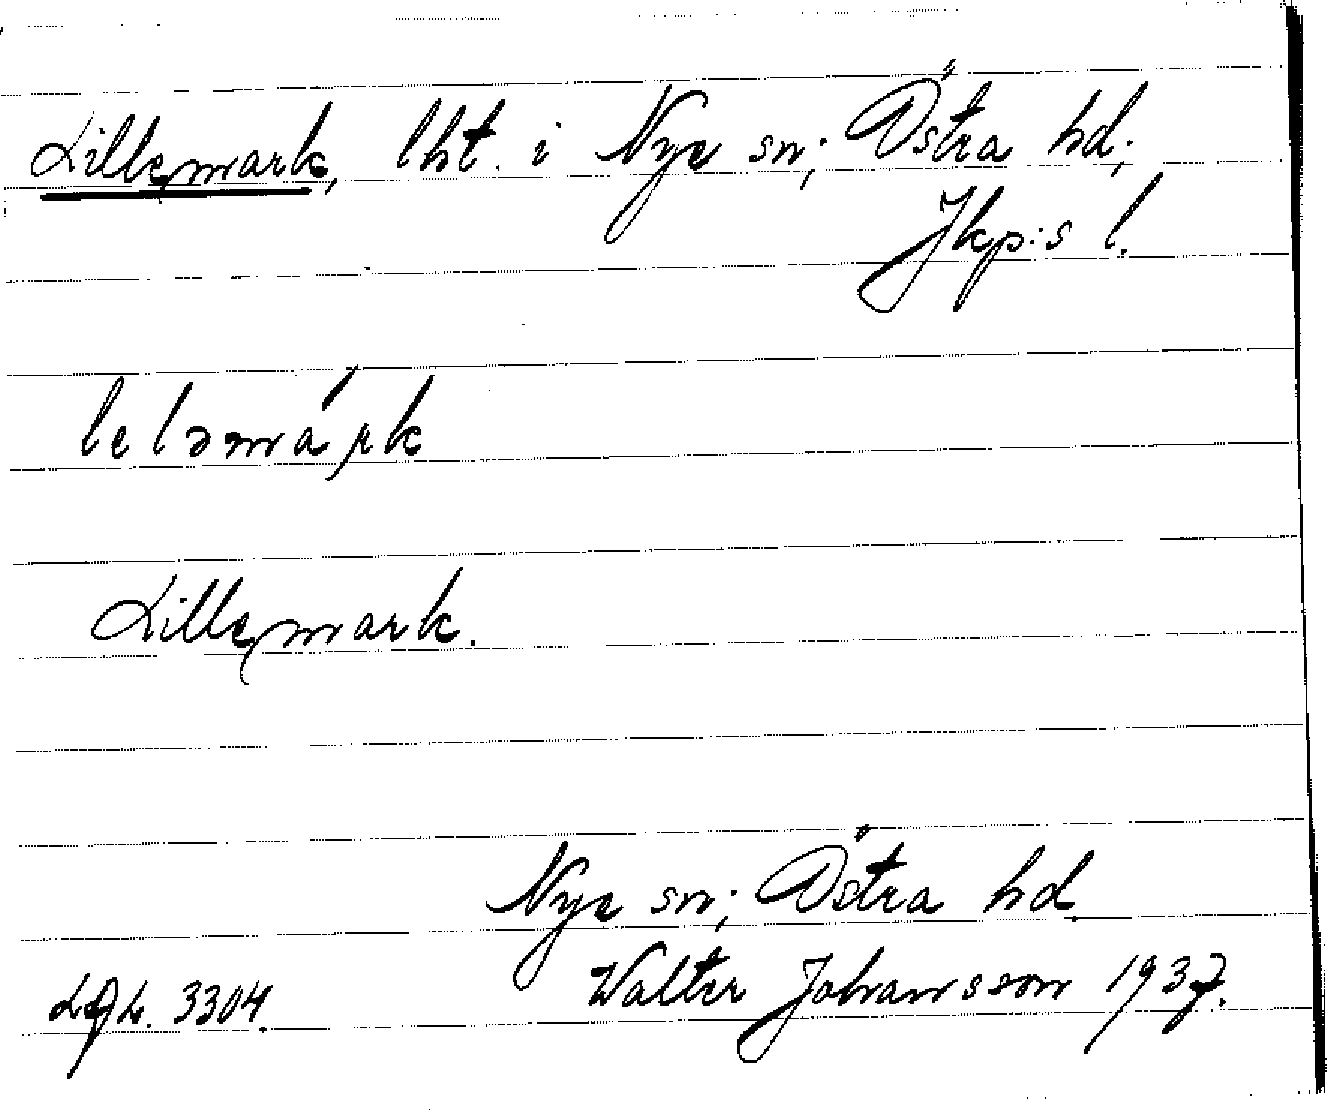 Lillemark, lht. i Nye sn; Östra hd;
Jkp:s l.
leləmárk
Lillemark.
Nye sn; Östra hd.
3304. Walter Johansson 1937.